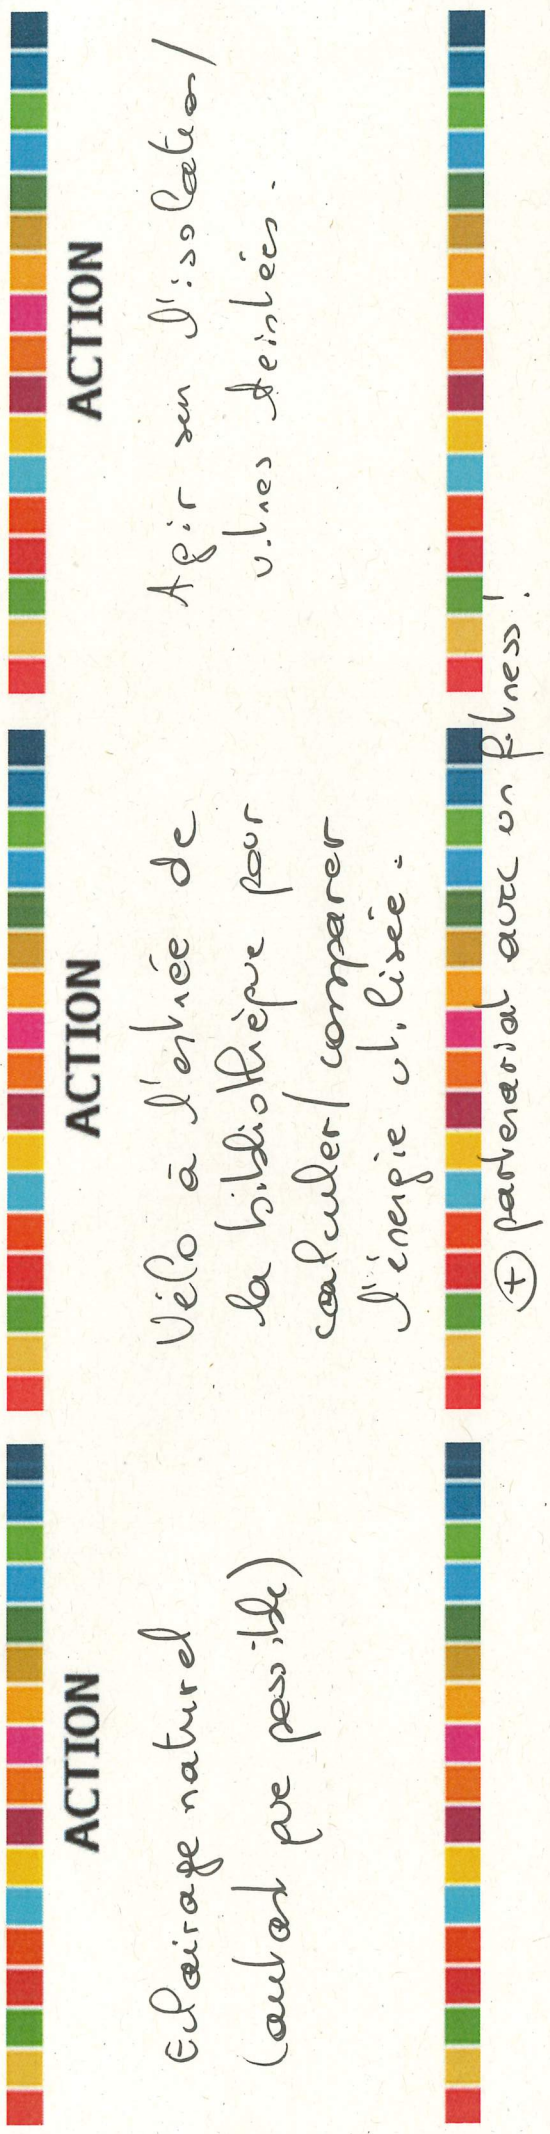 ACTION
Eclairage naturel
(autant que possible)
ACTION
Vélo à l'entrée de
la bibliothèque pour
calculer/comparer
l'énergie utilisée.
+ partenariat avec un fitness!
ACTION
Agir sur l'isolation/
vitres teintées.